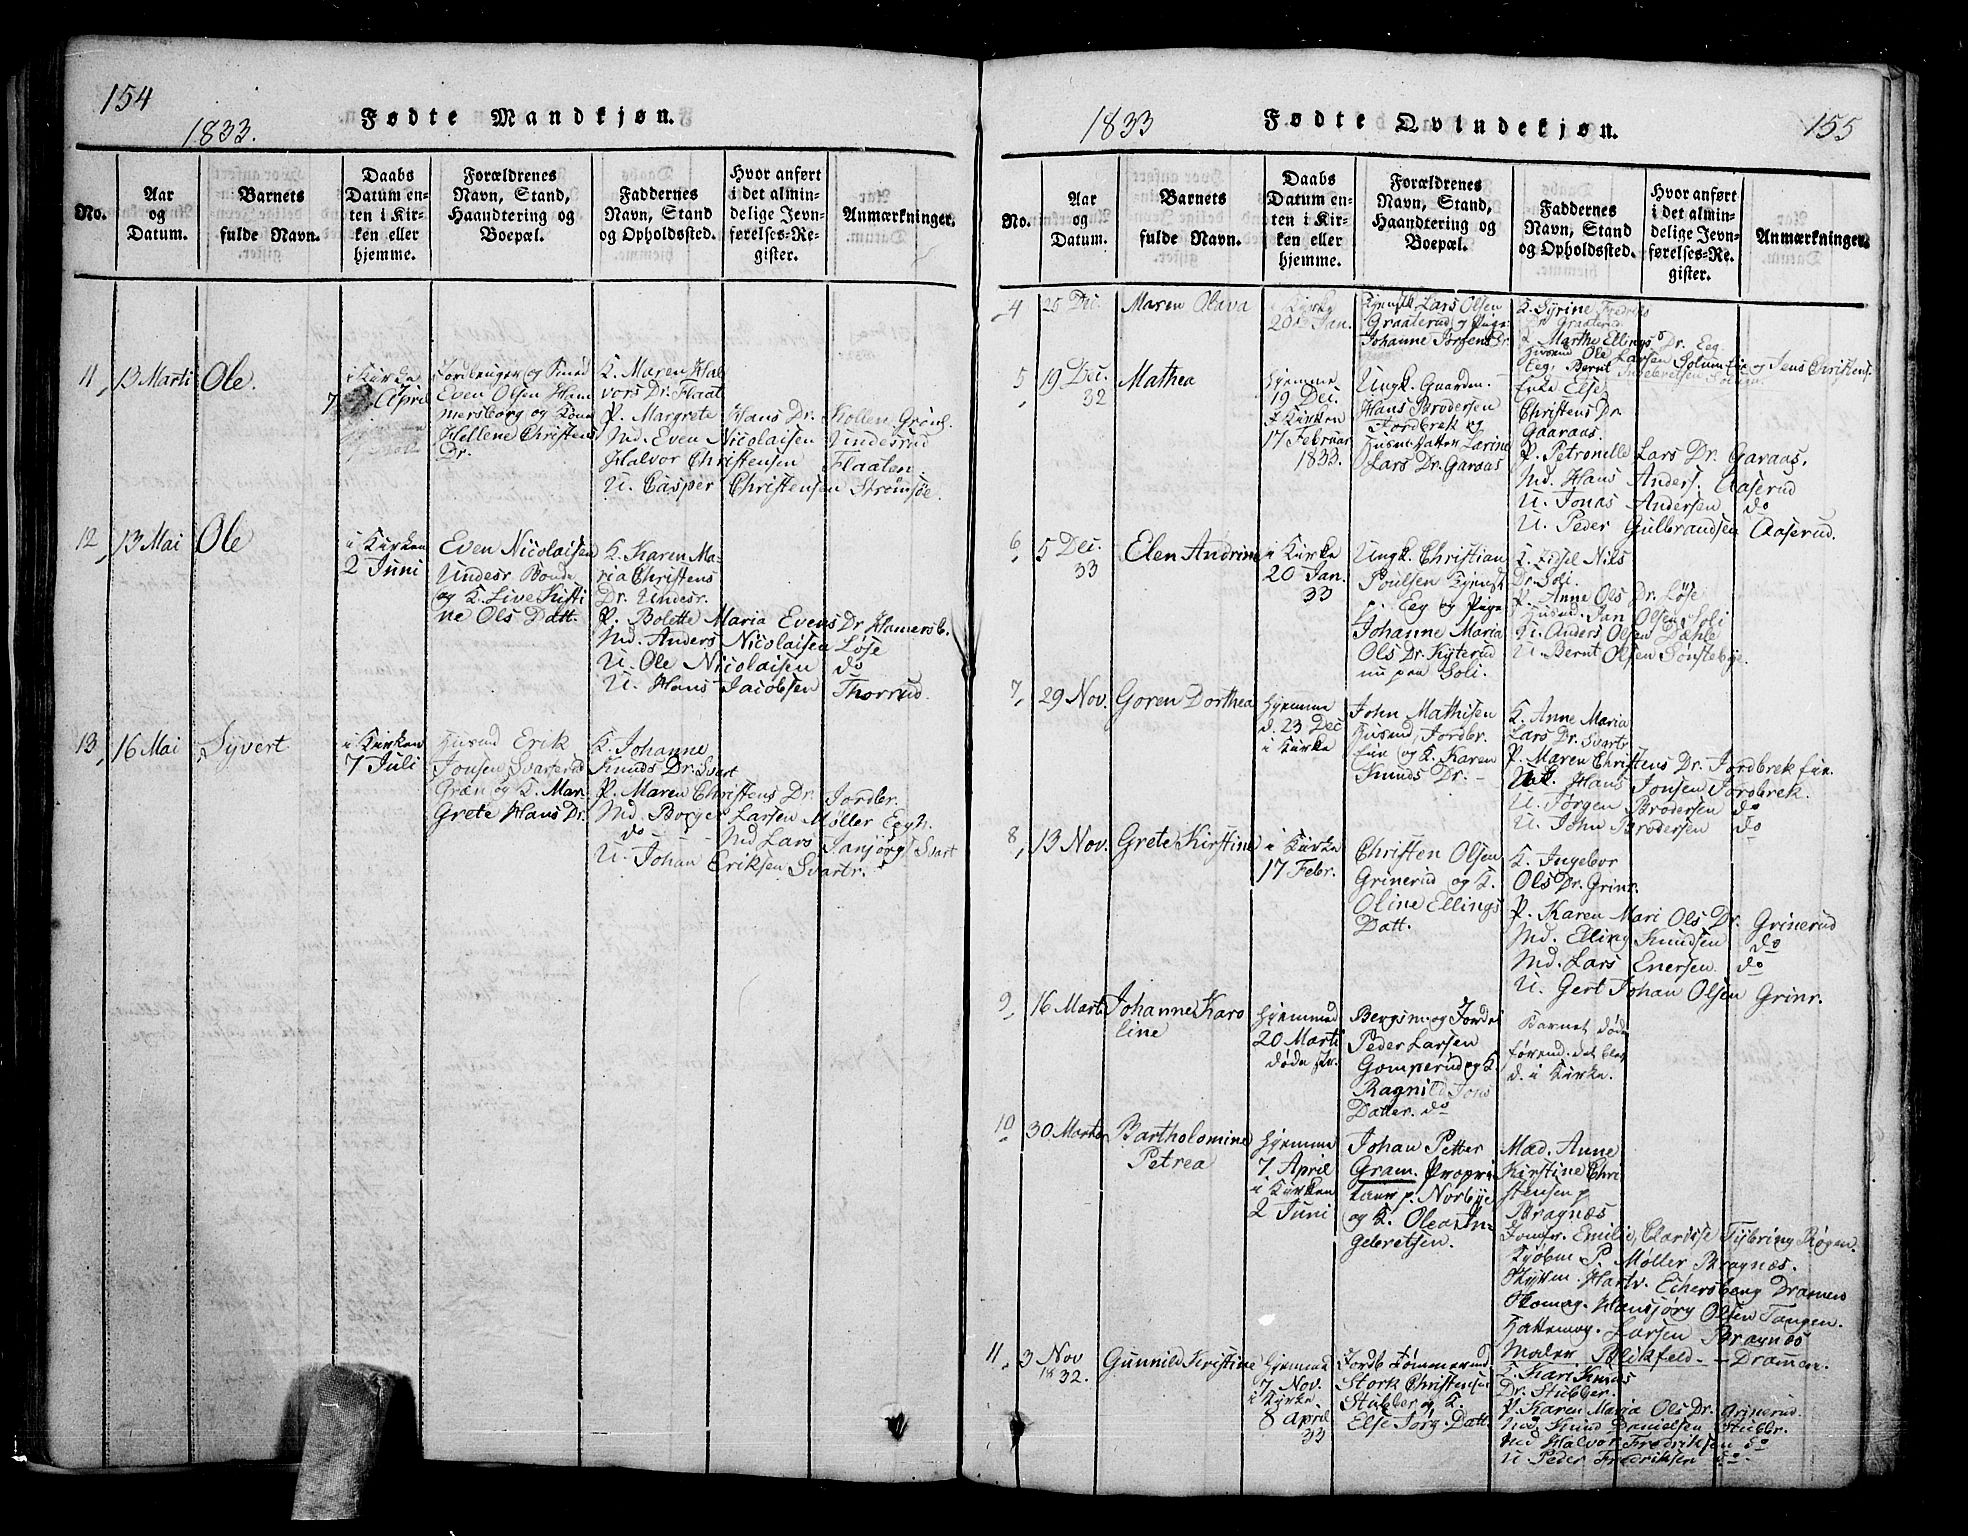 154
1833.
Fødte Mandkjøn.
No.
Aar
og
Datum.
Barnets
fulde Navn.
Daabs
Datum en-
ten i Kir-
ken eller
hjemme.
Forældrenes
Navn, Stand,
Haandtering og
Boepæl.
Faddernes
Navn, Stand
og Opholdssted.
Hvor anført
i det almin-
delige Jevn-
førelses-Re-
gister.
Anmærkninger.
11, 13 Marti
Ole.
i Kirke
7 April
Jordbruger og
Even Olsen Ham
mersborg og Kone
Hellene Christens
Dr.
K. Maren Hal
vors Dr. Flaat
P. Margrete Hans Dr. Kollen Grønl.
Md. Even Nicolaisen Underrud
Halvor Christensen Flaaten.
U. Casper Christensen Strømsøe.
12, 13 Mai
Ole
i Kirken
2 Juni
Even Nicolaisen
Undesr Bonde
og K. Live Kisti
ne Ols Datt.
K. Karen Ma-
ria Christens
Dr. Undesr.
P. Bolette Maria Evens Dr Hamersb.
Md. Anders Nicolaisen Løse
U. Ole Nicolaisen do
U. Hans Jacobsen Thorrud.
13, 16 Mai
Syvert
i Kirken
7 Juli
Husmd Erik
Jonsen Svarterud
Græn og K. Mar
Grete Hans Dr.
K. Johanne
Knuds Dr. Svart
P. Maren Christens Dr. Jordbr.
Md. Borger Larsen Møller Eegh.
do - - Md Lars Svart
U. Johan Eriksen Svartr.
1833
Fødte Qvindekjøn.
155
No.
Aar
og
Datum.
Barnets
fulde Navn.
Daabs
Datum en-
ten i Kir-
ken eller
hjemme.
Forældrenes
Navn, Stand,
Haandtering og
Boepæl.
Faddernes
Navn, Stand
og Opholdssted.
Hvor anført
i det almin-
delige Jevn-
førelses-Re-
gister.
Anmærkninger.
4, 25 Dec
Maren Olava
i Kirke
20 Jan.
Lars Olsen
Graaterud og Pige
Johanne Jørgens Dr.
K. Syrine Fredriks
Dr Graaterud
P. Marthe Ellings Dr. Eeg
Husmd Ole Larsen Solum
Eeg. Bernt
Jens Christens.
5, 19 Dec.
32
Mathea
Hjemme
19 Dec.
I Kirken
17 Februar
1833.
Ungk. Gaarden.
Hans Brodersen
Jordbrek og
Husm. datter Larine
Lars Dr. Garaas
Enke Else
Christens Dr.
Gaaraas.
P. Petronelle Lars Dr. Garaas.
Md. Hans Anders. Aaserud
U. Jonas Andersen do
U. Peder Gulbrandsen Aaserud.
6, 5 Dec.
33
Elen Andrine
i Kirke
20 Jan.
33
Ungk. Christian
Poulsen Tjenst
Eeg og Pige
Johanne Maria
Ols Dr. Kyterud
nu paa Soli.
K. Nils
Dr. Soli.
P. Anne Ols Dr. Løse
Husmd. Jan Olsen Soli
U. Anders Olsen Dæhle
U. Bernt Olsen Sønstebye.
7, 29 Nov.
Goren Dorthea
Hjemme
d. 23 Dec
i Kirke
John Mathisen
Husmd, Jordbr.
Eie og K. Karen
Knuds Dr. -
K. Anne Maria
Lars Dr. Svartr
P. Maren Christens Dr. Jordbrek Eie.
Hans Jonsen Jordbrek.
U. Jørgen Brodersen do
U. John Brodersen do
8, 13 Nov.
Grete Kirstine
i Kirke
17 Febr.
Christen Olsen
Grinerud og K.
Oline Ellings
Datt.
K. Ingebor
Ols Dr. Grinr.
P. Karen Mari Ols Dr. Grinerud
Md. Elling Knudsen do
Md. Lars Enersen do
U. Gert Johan Olsen Grinr.
9, 16 Marti
Johanne Karo
line
Hjemmed
20 Marti
døde
Bergsm. og Jordei
Peder Larsen
Gomperud og K.
Ragnild Jons
Datter. do
Barnet døde
førend det blev
d. i Kirke.
10 30 Martii
Bartholomine
Petrea
Hjemme
7 April
i Kirken
2 Juni
Johan Petter
Gram. Propri
tair p. Norbye
og K. Olea In-
gebretsen.
Mad. Anne
Kirstine Chri
stensen p
Bragnæs
Jomfr. Emilie Clarisse Tybring Røgen.
Kjøbm P. Møller Bragnæs.
Hartv. Echersberg Dramen
Skomag. Hansjørg Olsen Tangen.
Hattemag. Larsen Bragnæs
Maler Blikfeld - Dramen.
11, 3 Nov
1832.
Gunnild Kristine
Hjemmed
7 Nov.
i Kyrke
8 April
33
Jordb Tømmerud
Stork Christensen
Stubber og K.
Else Jørg. Datt.
K. Kari Knuds
Dr. Stubber.
P. Karen Maria Ols Dr. Grinerud.
Md. Knud Danielsen Stubbr.
Md Halvor Fredriksen do
U Peder Fredriksen do.